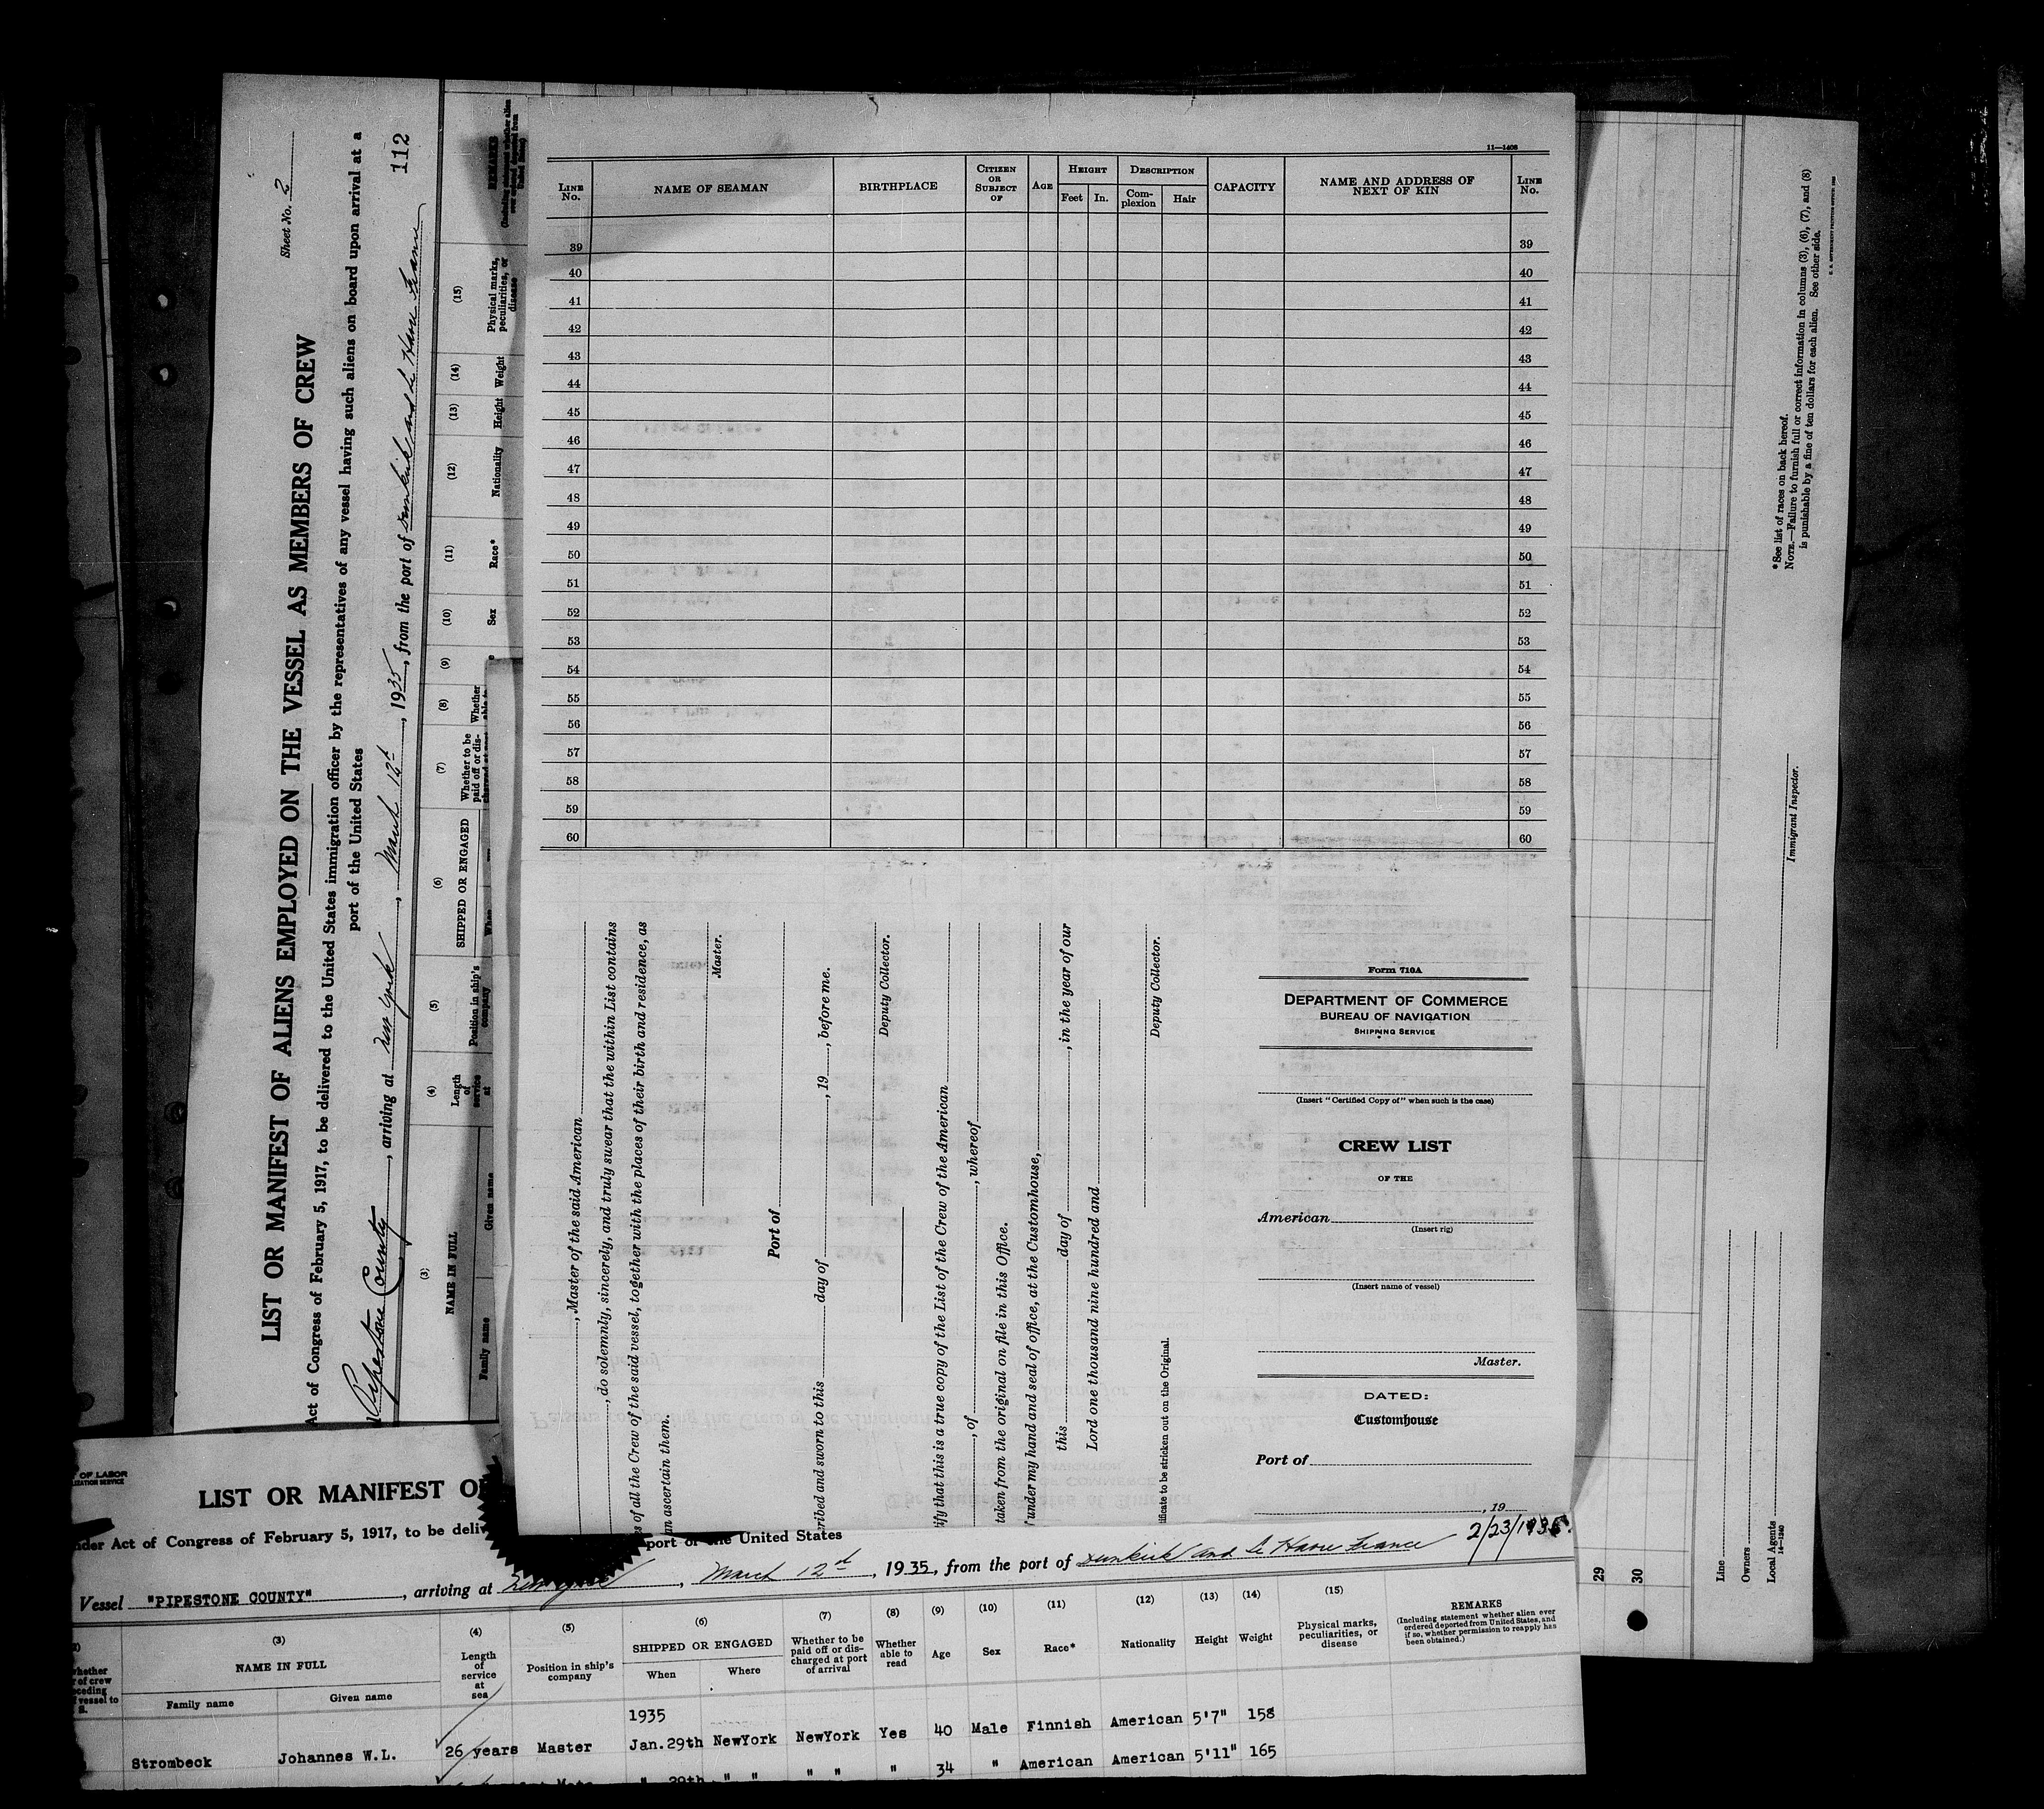 Sheet No. 2
LIST OR MANIFEST OF ALIENS EMPLOYED ON THE VESSEL AS MEMBERS OF CREW
Act of Congress of February 5, 1917, to be delivered to the United States immigration officer by the representatives of any vessel having such aliens on board upon arrival at a
port of the United States
Pipestone County, arriving at New York, March 12th, 1935, from the port of Dunkirk and Le Havre France
112
(3) (4) (5) (6) (7) (8) (9) (10) (11) (12) (13) (14) (15)
NAME IN FULL
Family name Given name
Length of service at
Position in ship's company
SHIPPED OR ENGAGED
When
Whether to be paid off or dis-
Whether
Sex Race* Nationality Height Weight
Physical marks, peculiarities, or disease
REMARKS
11—1408
LINE No. NAME OF SEAMAN BIRTHPLACE CITIZEN OR SUBJECT OF AGE HEIGHT DESCRIPTION CAPACITY NAME AND ADDRESS OF NEXT OF KIN LINE No.
Feet In. Com-plexion Hair
39 39
40 40
41 41
42 42
43 43
44 44
45 45
46 46
47 47
48 48
49 49
50 50
51 51
52 52
53 53
54 54
55 55
56 56
57 57
58 58
59 59
60 60
, Master of the said American
, do solemnly, sincerely, and truly swear that the within List contains
s of all the Crew of the said vessel, together with the places of their birth and residence, as
an ascertain them.
Master.
Port of
ribed and sworn to this day of , 19 , before me.
Deputy Collector.
ify that this is a true copy of the List of the Crew of the American
, of , whereof
taken from the original on file in this Office.
under my hand and seal of office, at the Customhouse,
this day of , in the year of our
Lord one thousand nine hundred and
Deputy Collector.
ificate to be stricken out on the Original.
Form 710A
DEPARTMENT OF COMMERCE
BUREAU OF NAVIGATION
SHIPPING SERVICE
(Insert "Certified Copy of" when such is the case)
CREW LIST
OF THE
American
(Insert rig)
(Insert name of vessel)
Master.
DATED:
Customhouse
Port of
, 19
*See list of races on back hereof.
NOTE.—Failure to furnish full or correct information in columns (3), (6), (7), and (8)
is punishable by a fine of ten dollars for each alien. See other side.
Immigrant Inspector.
Line
Owners
Local Agents
14—1240
29
30
OF LABOR
LIST OR MANIFEST O
nder Act of Congress of February 5, 1917, to be deliv
port of the United States
Vessel "PIPESTONE COUNTY", arriving at New York, March 12th, 1935, from the port of Dunkirk and Le Havre France 2/23/1935.
(3) (4) (5) (6) (7) (8) (9) (10) (11) (12) (13) (14) (15)
NAME IN FULL
Family name Given name
Length of service at sea
Position in ship's company
SHIPPED OR ENGAGED
When Where
Whether to be paid off or dis-charged at port of arrival
Whether able to read
Age Sex Race* Nationality Height Weight
Physical marks, peculiarities, or disease
REMARKS
(Including statement whether alien ever ordered deported from United States, and if so, whether permission to reapply has been obtained.)
1935
Strombeck Johannes W.L. 26 years Master Jan.29th NewYork NewYork Yes 40 Male Finnish American 5'7" 158
" 29th " " " " " 34 " American American 5'11" 165